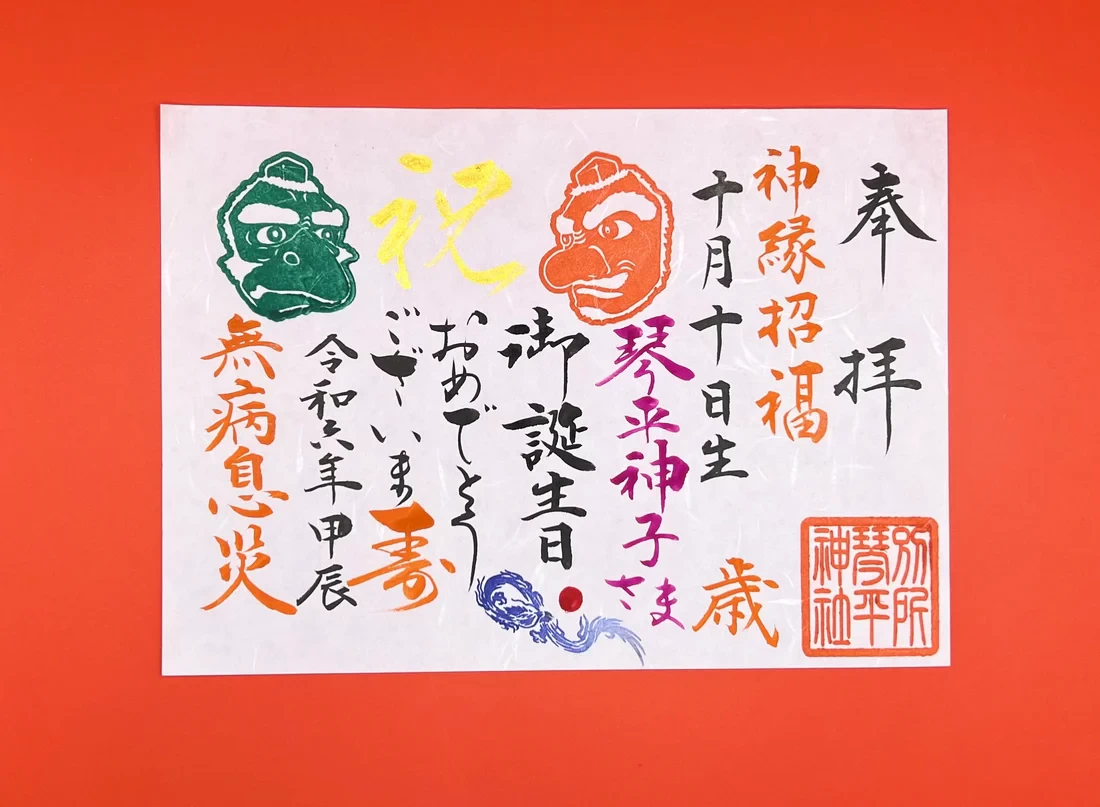 奉拝
神縁招福
十月十日生
歳
琴平神子さま
御誕生日
おめでとう
ございます
祝
寿
令和六年甲辰
無病息災
別所
琴平
神社